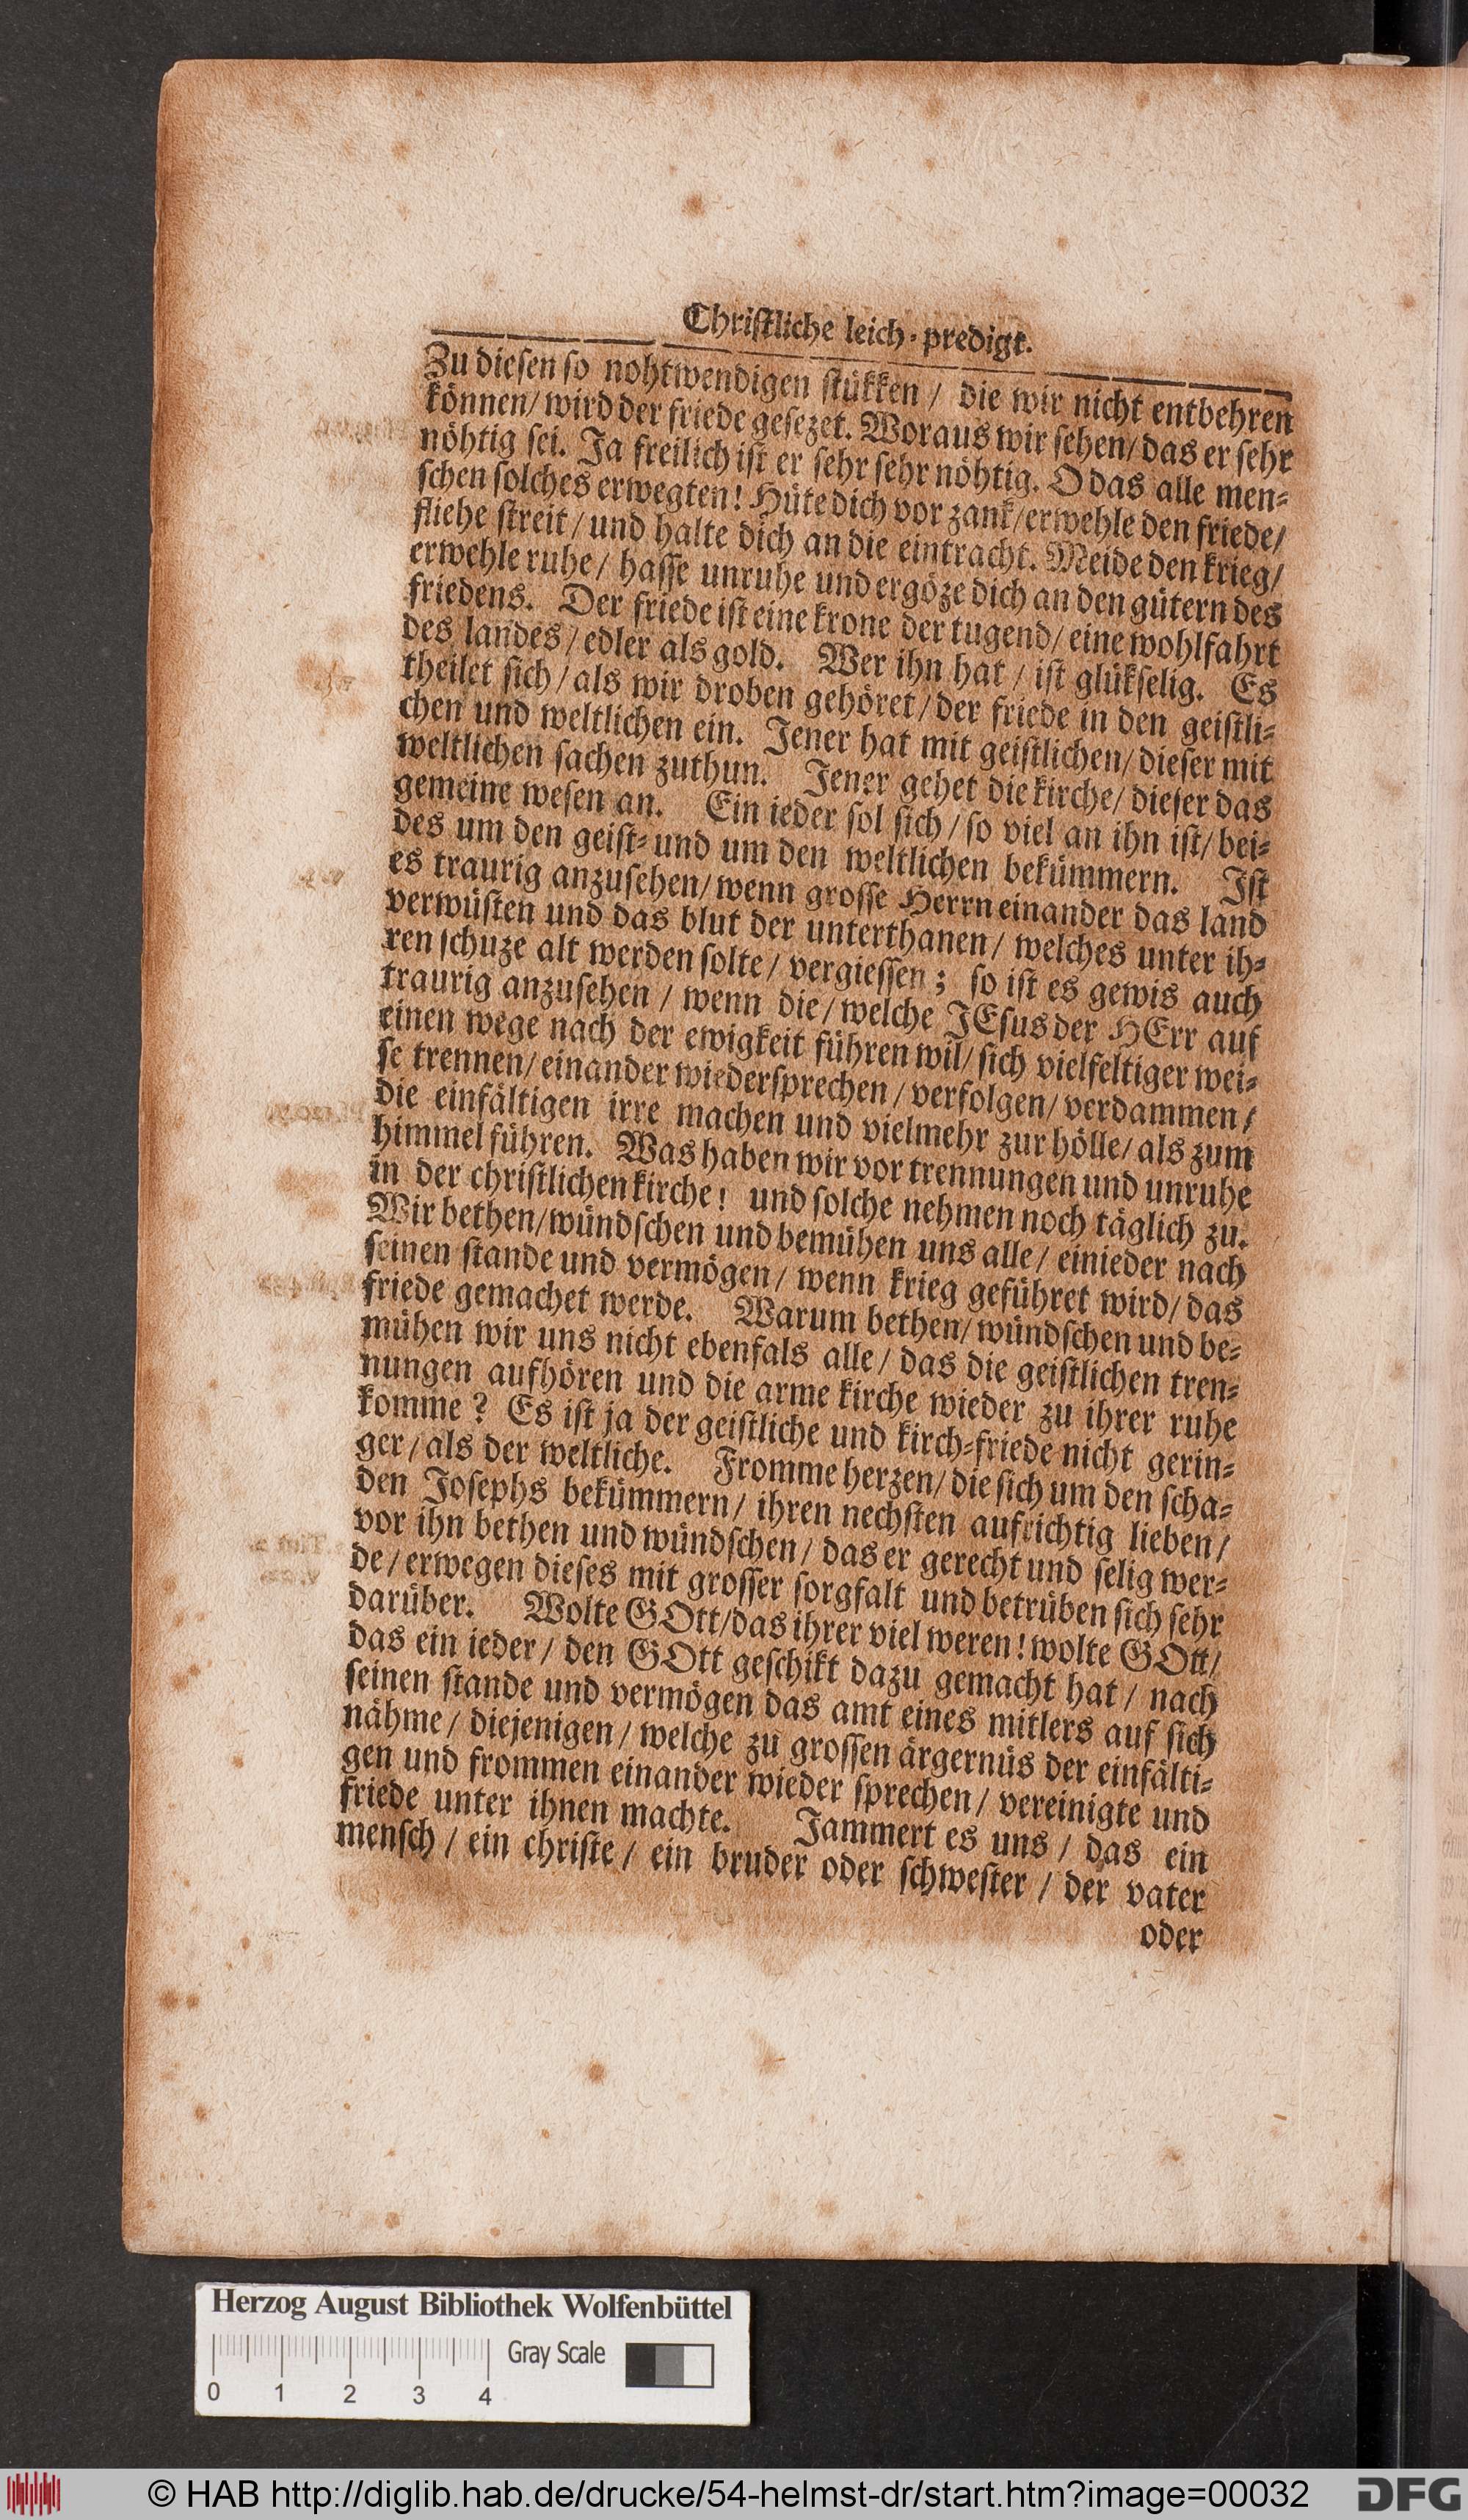 Christliche leich-predigt.
Zu diesen so nohtwendigen stükken / die wir nicht entbehren
können/ wird der friede gesezet. Woraus wir sehen/ das er sehr
nöhtig sei. Ja freilich ist er sehr sehr nöhtig. O das alle men-
schen solches erwegten! Hüte dich vor zank/erwehle den friede/
fliehe streit / und halte dich an die eintracht. Meide den krieg/
erwehle ruhe / hasse unruhe und ergöze dich an den gütern des
friedens. Der friede ist eine krone der tugend/ eine wohlfahrt
des landes / edler als gold. Wer ihn hat / ist glükselig. Es
theilet sich / als wir droben gehöret / der friede in den geistli-
chen und weltlichen ein. Jener hat mit geistlichen/ dieser mit
weltlichen sachen zuthun. Jener gehet die kirche/ dieser das
gemeine wesen an. Ein ieder sol sich / so viel an ihn ist/ bei-
des um den geist- und um den weltlichen bekümmern. Ist
es traurig anzusehen/ wenn grosse Herrn einander das land
verwüsten und das blut der unterthanen/ welches unter ih-
ren schuze alt werden solte / vergiessen; so ist es gewis auch
traurig anzusehen / wenn die / welche JEsus der HErr auf
einen wege nach der ewigkeit führen wil/ sich vielfeltiger wei-
se trennen/ einander wiedersprechen / verfolgen/ verdammen /
die einfältigen irre machen und vielmehr zur hölle/ als zum
himmel führen. Was haben wir vor trennungen und unruhe
in der christlichen kirche! und solche nehmen noch täglich zu.
Wir bethen/wündschen und bemühen uns alle / einieder nach
seinen stande und vermögen / wenn krieg geführet wird/ das
friede gemachet werde. Warum bethen/ wündschen und be-
mühen wir uns nicht ebenfals alle / das die geistlichen tren-
nungen aufhören und die arme kirche wieder zu ihrer ruhe
komme? Es ist ja der geistliche und kirch-friede nicht gerin-
ger / als der weltliche. Fromme herzen/ die sich um den scha-
den Josephs bekümmern / ihren nechsten aufrichtig lieben /
vor ihn bethen und wündschen / das er gerecht und selig wer-
de / erwegen dieses mit grosser sorgfalt und betrüben sich sehr
darüber. Wolte GOtt/das ihrer viel weren! wolte GOtt/
das ein ieder / den GOtt geschikt dazu gemacht hat / nach
seinen stande und vermögen das amt eines mitlers auf sich
nähme / diejenigen / welche zu grossen ärgernüs der einfälti-
gen und frommen einander wieder sprechen / vereinigte und
friede unter ihnen machte. Jammert es uns / das ein
mensch / ein christe / ein bruder oder schwester / der vater
oder
Herzog August Bibliothek Wolfenbüttel
Gray Scale
0 1 2 3 4
© HAB http://diglib.hab.de/drucke/54-helmst-dr/start.htm?image=00032
DFG